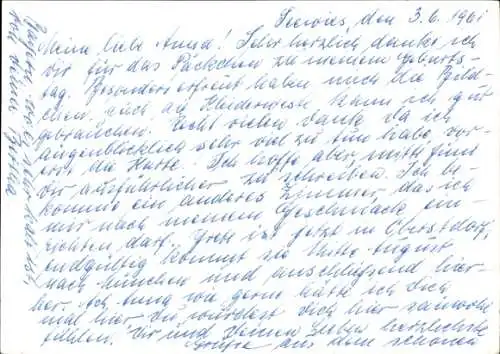 Seewies, den 3.6.1961
Meine liebe Anna! Sehr herzlich danke ich
Dir für das Päckchen zu meinem Geburts-
tag. Besonders erfreut haben mich die Bild-
chen, auch die Kleiderweste kann ich gut
gebrauchen. Recht vielen Dank. Da ich
augenblicklich sehr viel zu tun habe, vor-
erst die Karte. Ich hoffe, aber mitte Juni
Dir ausführlicher zu schreiben. Ich be-
komme ein anderes Zimmer, das ich
mir nach meinem Geschmack ein-
richten darf. Grete ist jetzt in Oberstdorf,
endgültig kommt sie Mitte August
nach München und anschließend hier-
her. Ach Anna wie gerne hätte ich Dich
mal hier Du würdest Dich hier sauwohl
fühlen. Dir und Deinen Lieben herzlichste
Grüße aus dem schönen